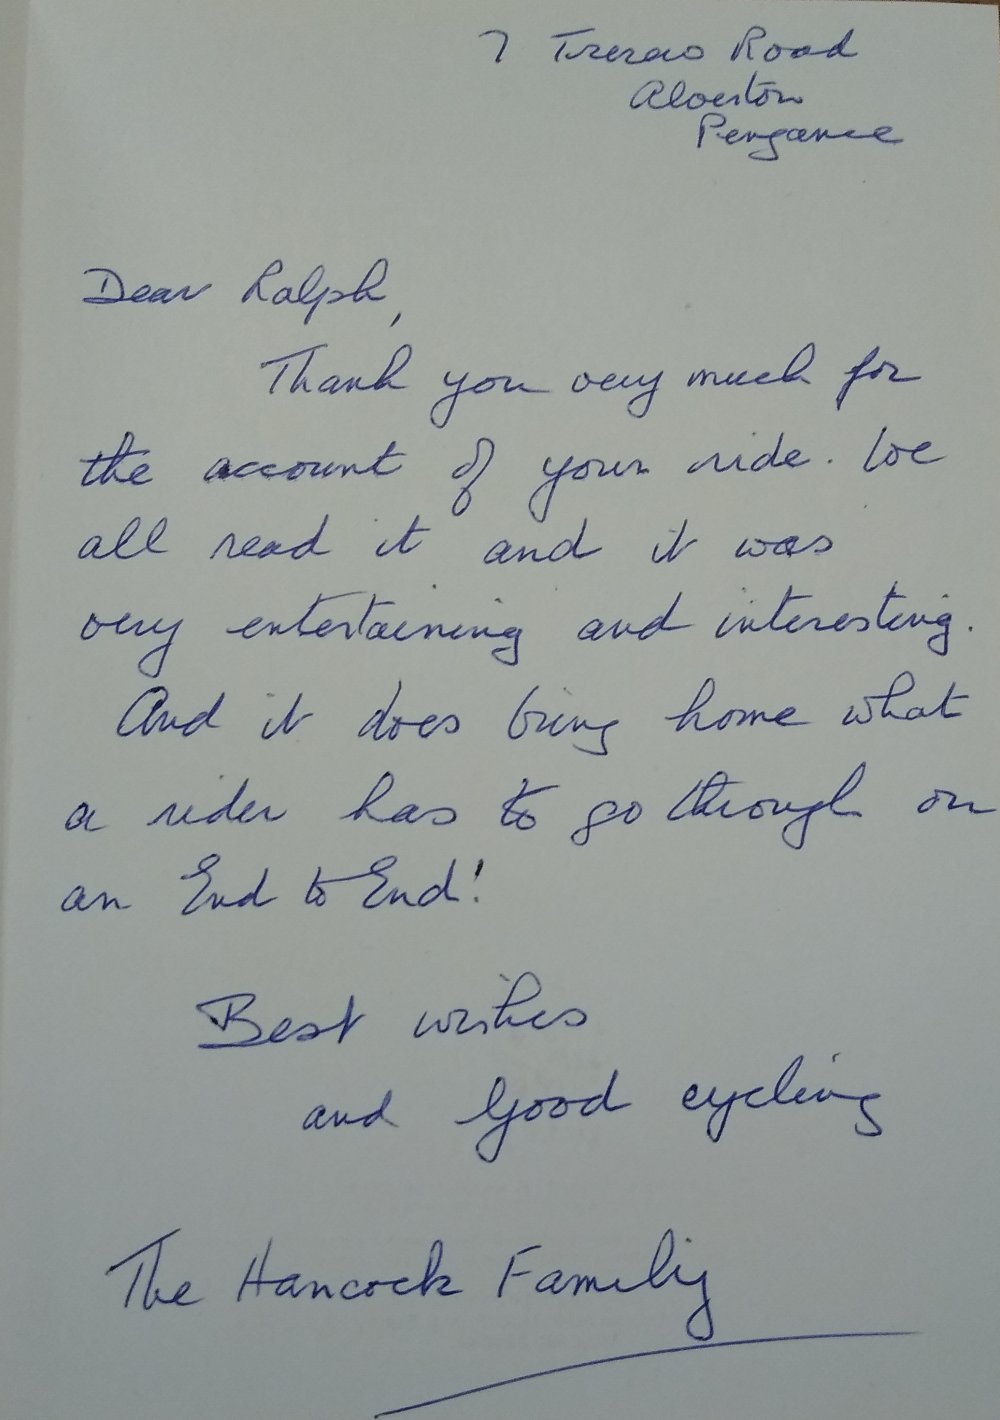 7 Road
Alverton
Penzance
Dear Ralph,
Thank you very much for
the account of your ride. We
all read it and it was
very entertaining and interesting.
And it does bring home what
a rider has to go through on
an End to End!
Best wishes
and Good cycling
The Hancock Family